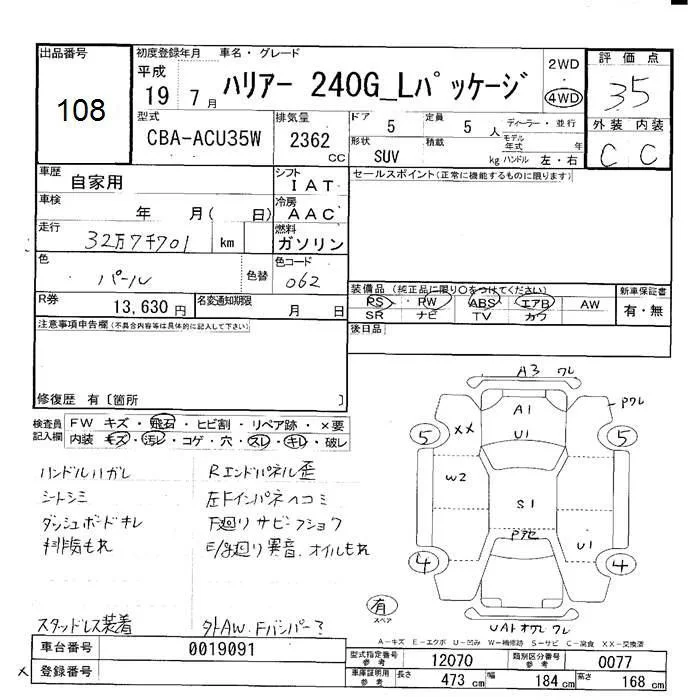 出品番号
108
初度登録年月 車名・グレード
平成
19 7月
ハリアー 240G_Lパッケージ
2WD
4WD
評価点
3.5
外装 内装
C C
型式
CBA-ACU35W
排気量
2362
CC
ドア 5
定員 5 人
ディーラー・並行
形状 SUV
積載 kg
モデル年式 年
ハンドル 左・右
車歴
自家用
シフト
IAT
セールスポイント(正常に機能するものに限ります)
車検
年 月( 日)
冷房
AAC
走行
32万7千701 km
燃料
ガソリン
色
パール
色替
色コード
062
R券
13,630 円
名変通知期限
月 日
装備品 (純正品に限り○をつけてください)
PS RW ABS エアB AW
SR ナビ TV カワ
新車保証書
有・無
後日品
注意事項申告欄(不具合内容等は具体的に記入して下さい)
修復歴 有〔箇所 〕
検査員
記入欄
FW キズ・飛石・ヒビ割・リペア跡・×要
内装 キズ・汚レ・コゲ・穴・スレ・キレ・破レ
ハンドルハガレ
シートシミ
ダッシュボードキレ
排気もれ
スタッドレス装着
Rエンドパネル歪
左Fインパネヘコミ
下廻りサビ・フショク
E/g廻り異音、オイルもれ
A3 ワレ
A1
U1
Pワレ
XX
5
5
W2
S1
U1
4
4
有
スペア
A-キズ E-エクボ U-凹み W-補修跡 S-サビ C-腐食 XX-交換済
車台番号
0019091
登録番号
型式指定番号
参考
12070
類別区分番号
参考
0077
車庫証明用
参考
長さ 473 cm
幅 184 cm
高さ 168 cm